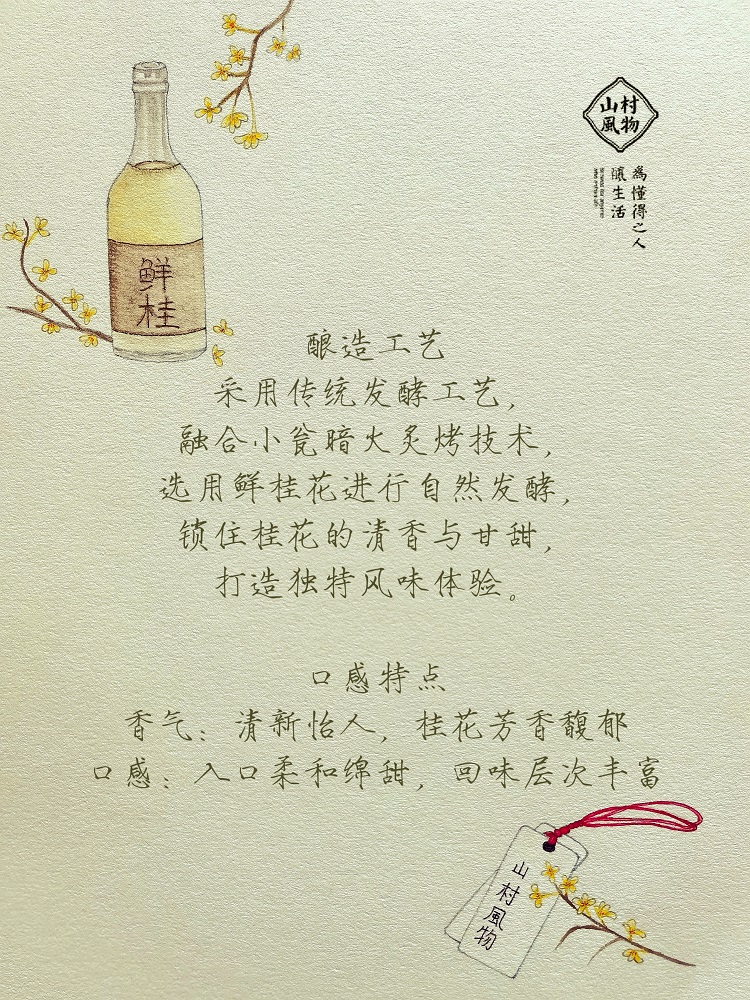 山村
風物
為懂得之人
釀生活
鲜
桂
酿造工艺
采用传统发酵工艺，
融合小瓮暗火炙烤技术，
选用鲜桂花进行自然发酵，
锁住桂花的清香与甘甜，
打造独特风味体验。
口感特点
香气：清新怡人，桂花芳香馥郁
口感：入口柔和绵甜，回味层次丰富
山村風物